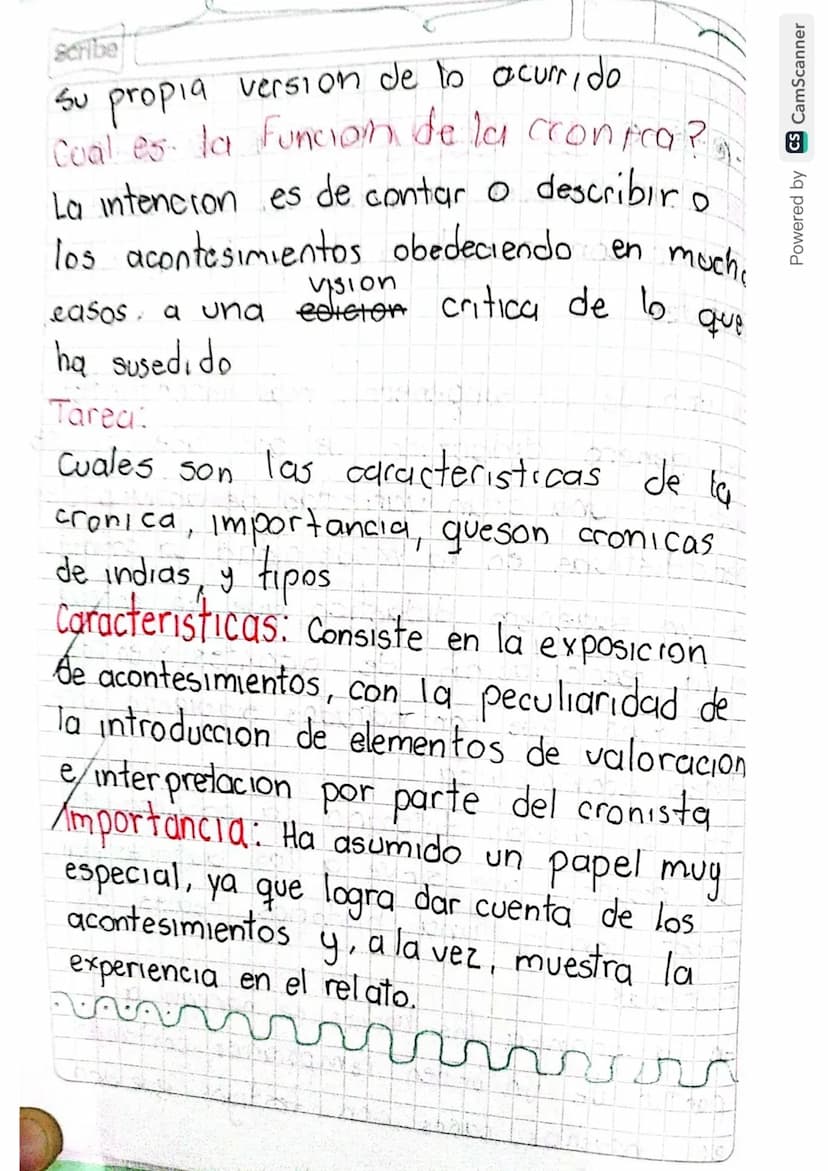 scribe
su propia version de lo acurrido
Cual es la funcion de la cronica?
La intencion es de contar o describir o
los acontesimientos obedeciendo en mucho
casos. a una vision edicion critica de lo que
ha susedido
Tarea:
Cuales son las caracteristicas de la
cronica, importancia, queson cronicas
de indias, y tipos
Caracteristicas: Consiste en la exposicion
de acontesimientos, con la peculiaridad de
la introduccion de elementos de valoracion
e interpretacion por parte del cronista
Importancia: Ha asumido un papel muy
especial, ya que logra dar cuenta de los
acontesimientos y, a la vez, muestra la
experiencia en el relato.
Powered by CS CamScanner